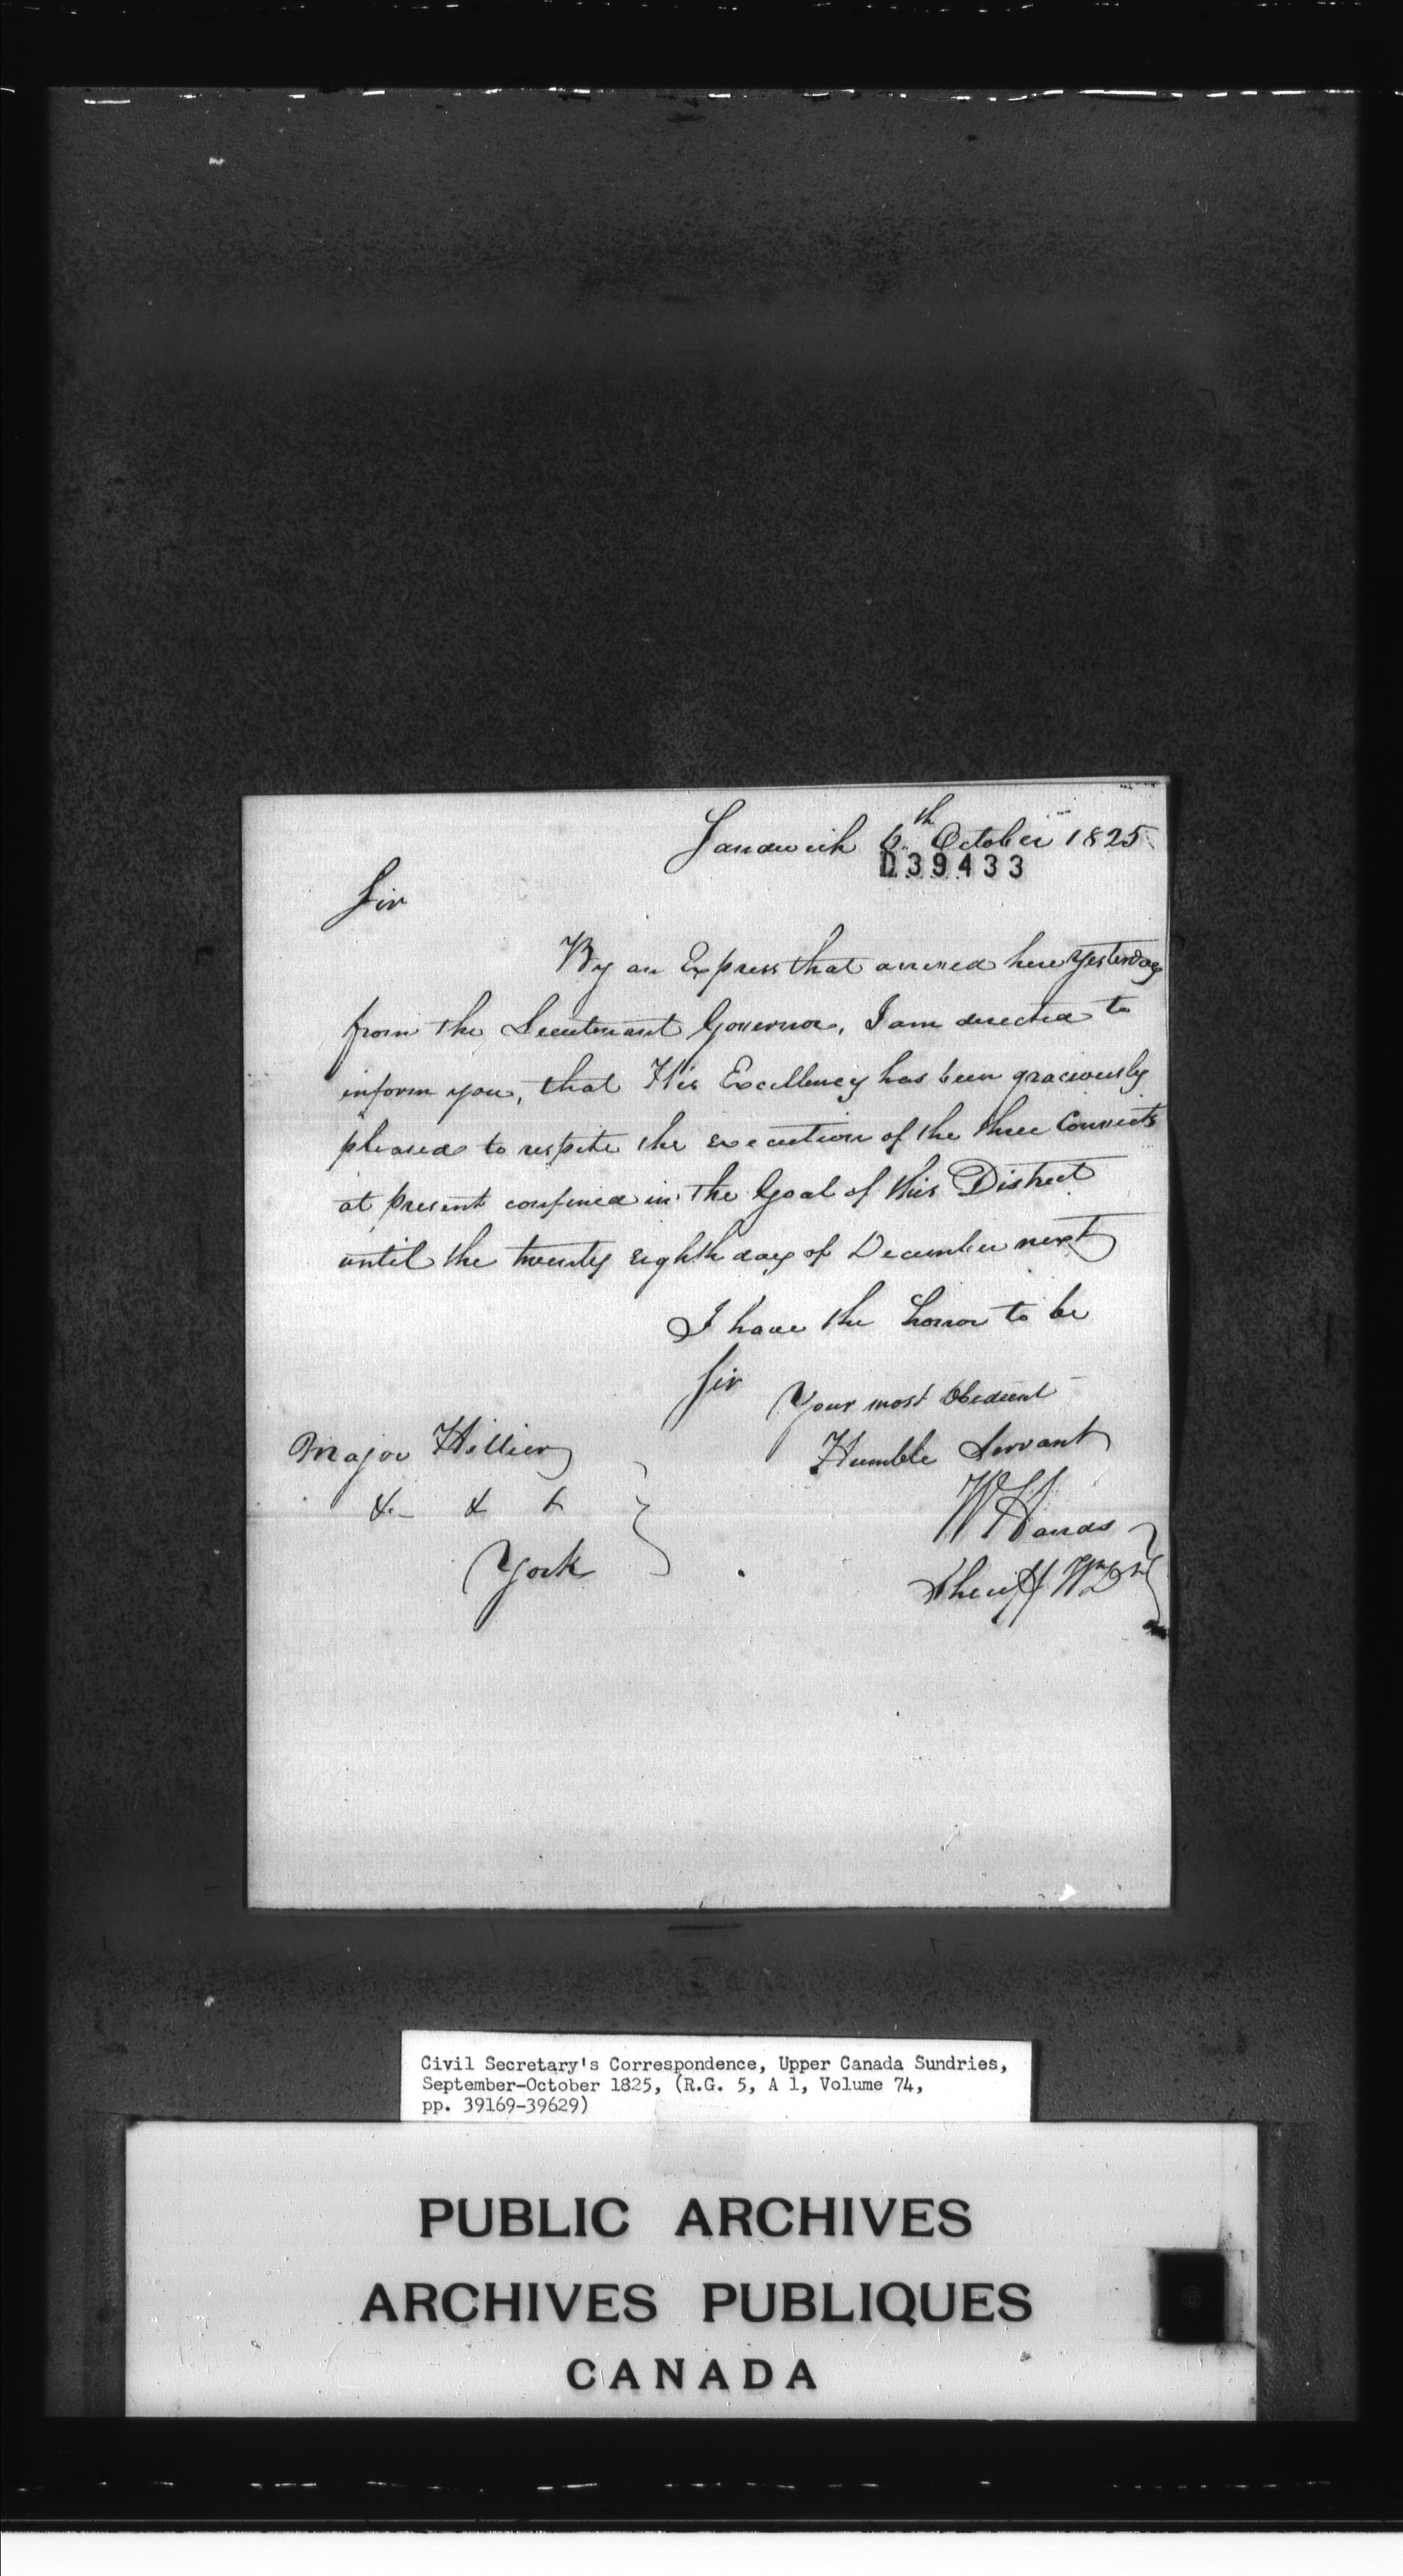 Sandwich 6th October 1825
D39433
Sir
By an Express that arrived here yesterday
from the Lieutenant Governor, I am directed to
inform you, that His Excellency has been graciously
pleased to respite the execution of the three Convicts
at present confined in the Goal of this District
until the twenty eighth day of December next
I have the honor to be
Sir
Your most Obedient
Humble Servant
W Hands
Sheriff Wn Dt
Major Hillier
& & &
York
Civil Secretary's Correspondence, Upper Canada Sundries,
September-October 1825, (R.G. 5, A 1, Volume 74,
pp. 39169-39629)
PUBLIC ARCHIVES
ARCHIVES PUBLIQUES
CANADA